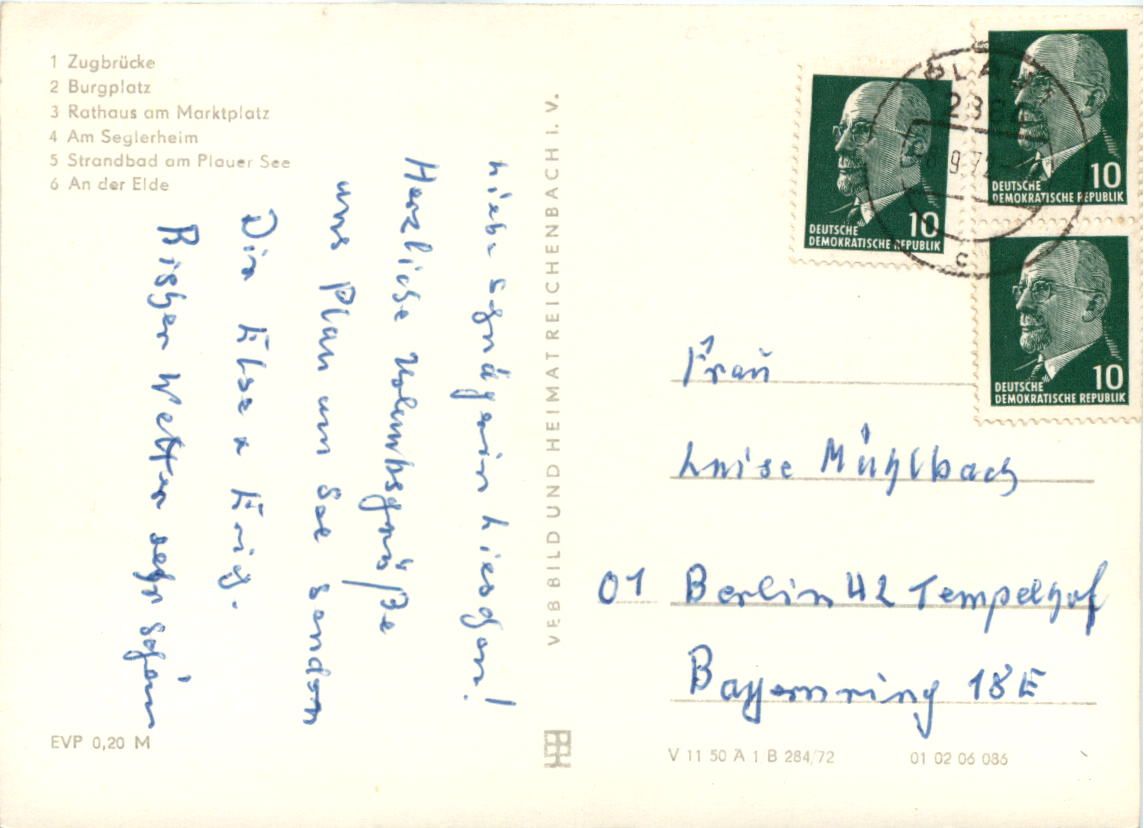 1 Zugbrücke
2 Burgplatz
3 Rathaus am Marktplatz
4 Am Seglerheim
5 Strandbad am Plauer See
6 An der Elde
Liebe
Herzliche Urlaubsgrüße
aus Plau am See senden
Die Elsa u
Bisher Wetter sehr schön
EVP 0,20 M
VEB BILD UND HEIMAT REICHENBACH I. V.
PLAU
9.72
C
10
DEUTSCHE
DEMOKRATISCHE REPUBLIK
10
DEUTSCHE
DEMOKRATISCHE REPUBLIK
10
DEUTSCHE
DEMOKRATISCHE REPUBLIK
Frau
Luise Mühlbach
01 Berlin 42 Tempelhof
Bayernring 18E
V 11 50 A 1 B 284/72
01 02 06 086